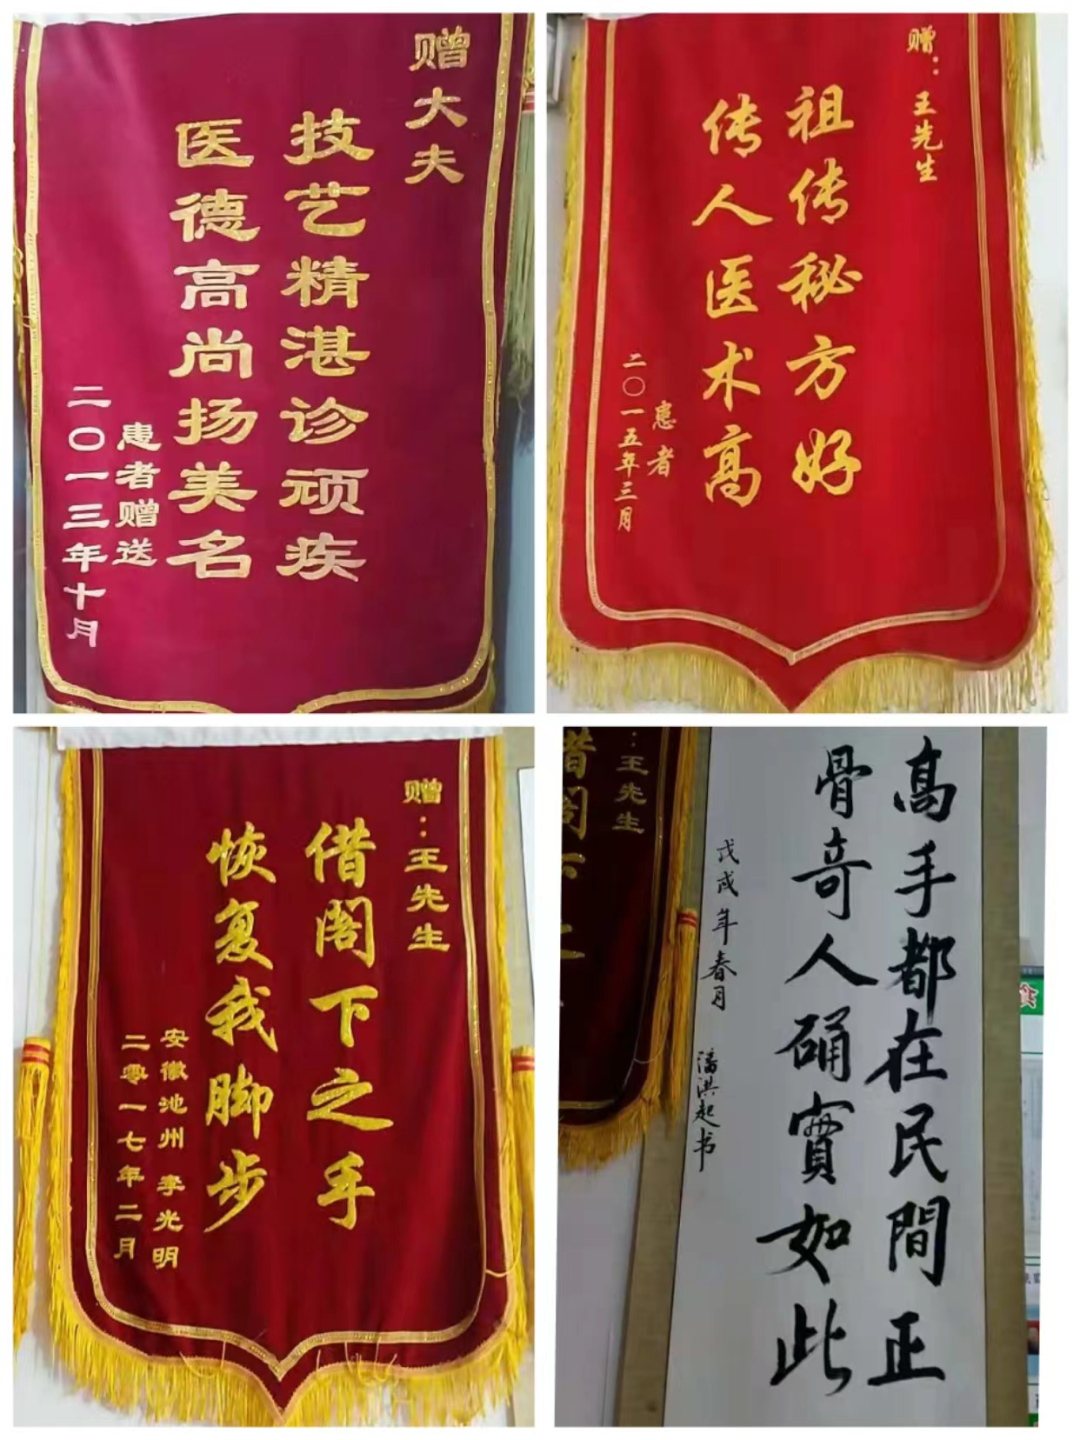 赠大夫
技艺精湛诊顽疾
医德高尚扬美名
患者赠送
二〇一三年十月
赠：王先生
祖传秘方好
传人医术高
患者
二〇一五年三月
赠：王先生
借阁下之手
恢复我脚步
安徽池州 李光明
二零一七年二月
高手都在民間正
骨奇人确實如此
戊戌年春月
潘洪起书
：王先生
借阁下之
食